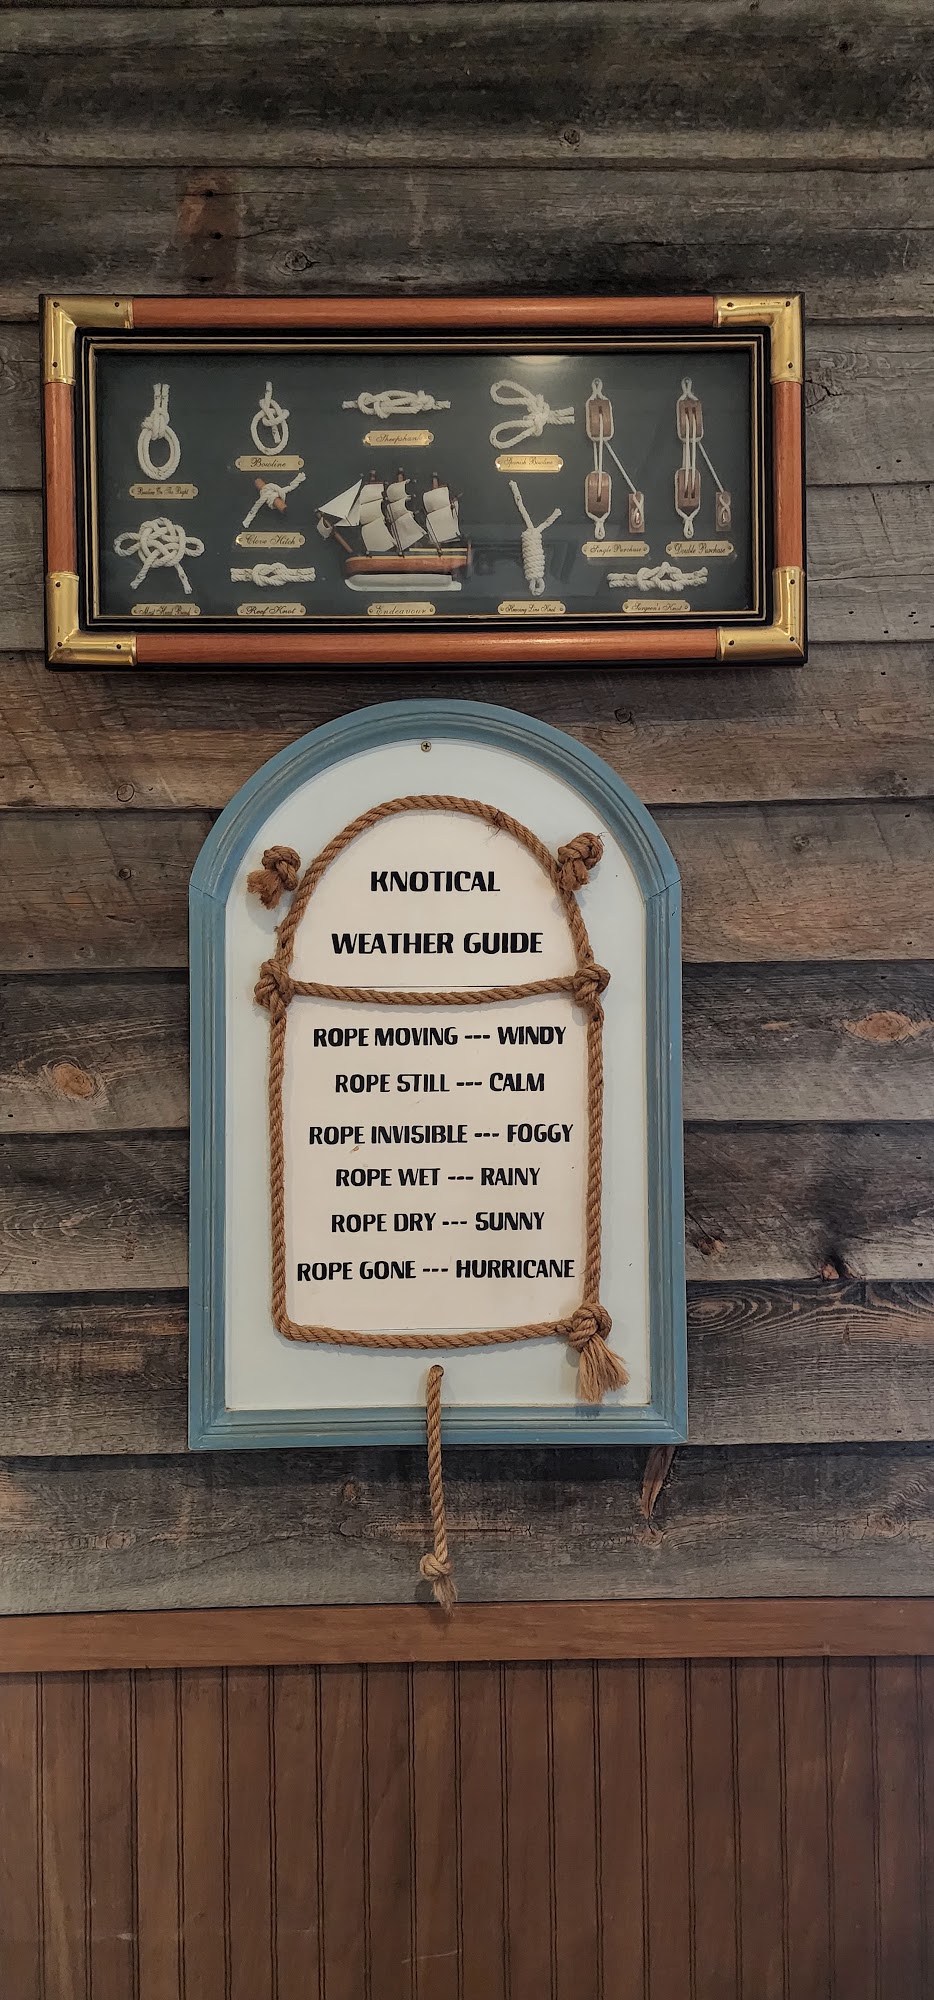 Bowline On The Bight
Bowline
Sheepshank
Spanish Bowline
Clove Hitch
Single Purchase
Double Purchase
Mast Head Bend
Reef Knot
Endeavour
Heaving Line Knot
Surgeon's Knot
KNOTICAL
WEATHER GUIDE
ROPE MOVING --- WINDY
ROPE STILL --- CALM
ROPE INVISIBLE --- FOGGY
ROPE WET --- RAINY
ROPE DRY --- SUNNY
ROPE GONE --- HURRICANE